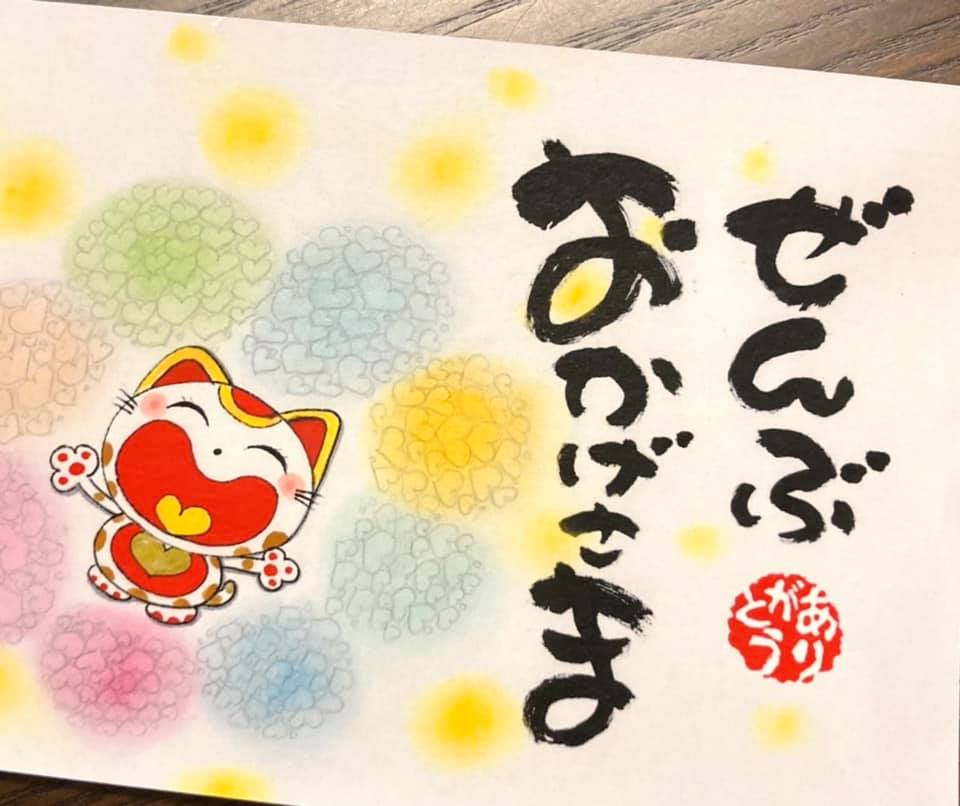 ぜんぶ
おかげさま
ありがとう